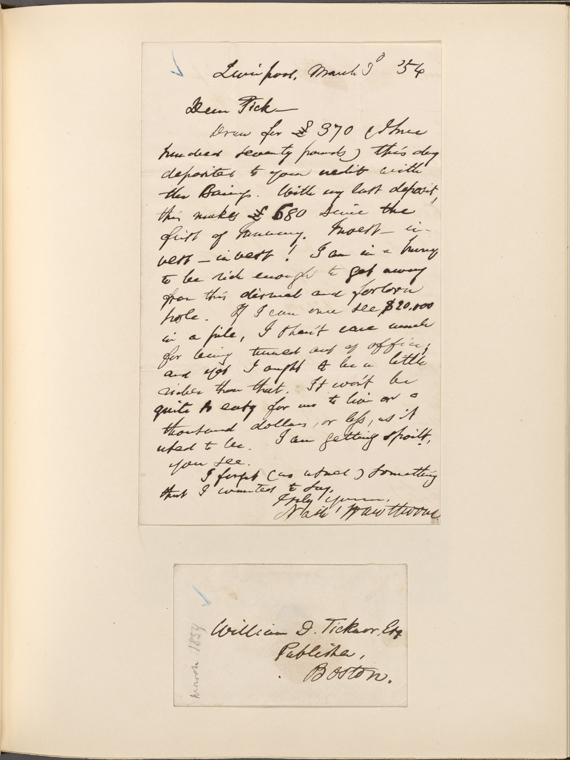 Liverpool, March 3d '54
Dear Tick—
Draw for £370 (three
hundred seventy pounds) this day
deposited to your credit with
the Barings. With my last deposit,
this makes £680 since the
first of January. Invest—in-
vest—invest! I am in a hurry
to be rich enough to get away
from this dismal and forlorn
hole. If I can once see $20,000
in a pile, I shan't care much
for being turned out of office;
and yet I ought to be a little
richer than that. It won't be
quite so easy for us to live on a
thousand dollars, or less, as it
used to be. I am getting spoilt,
you see.
I forget (as usual) something
that I wanted to say.
Truly Yours,
Nath' Hawthorne
William D. Ticknor, Esq
Publisher,
Boston.
March 1854